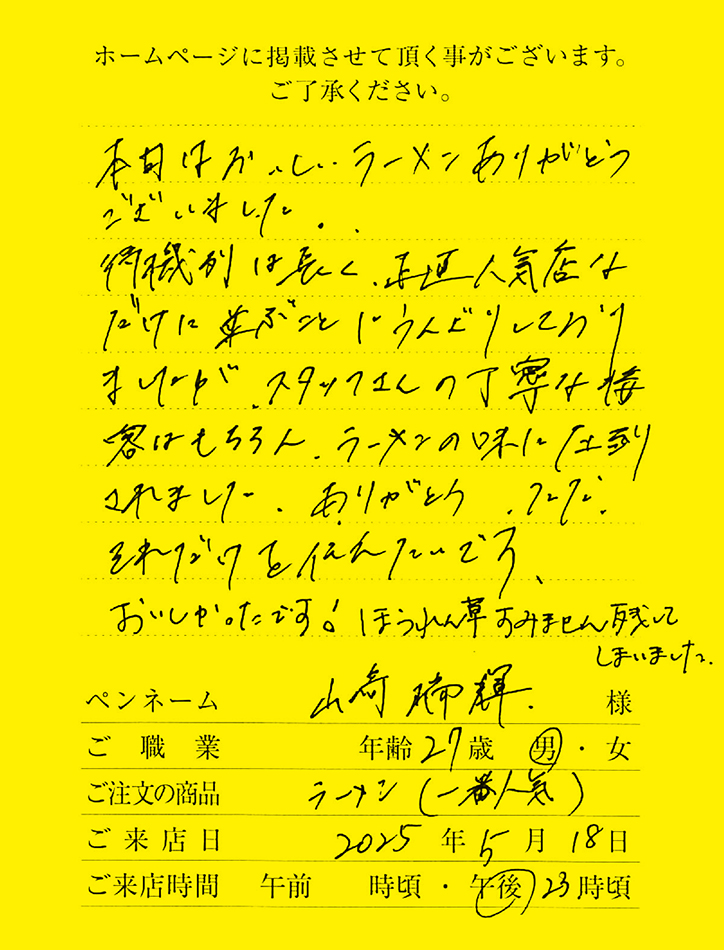 ホームページに掲載させて頂く事がございます。
ご了承ください。
本日はおいしいラーメンありがとう
ございました。
待機列は長く、正直人気店な
だけに並ぶことにうんざりしており
ましたが、スタッフさんの丁寧な接
客はもちろん、ラーメンの味に圧倒
されました。ありがとう、ただ、
それだけを伝えたいです、
おいしかったです! ほうれん草すみません残して
しまいました。
ペンネーム 山崎 瑞輝. 様
ご職業 年齢27歳 男・女
ご注文の商品 ラーメン(一番人気)
ご来店日 2025年5月18日
ご来店時間 午前 時頃・午後23時頃